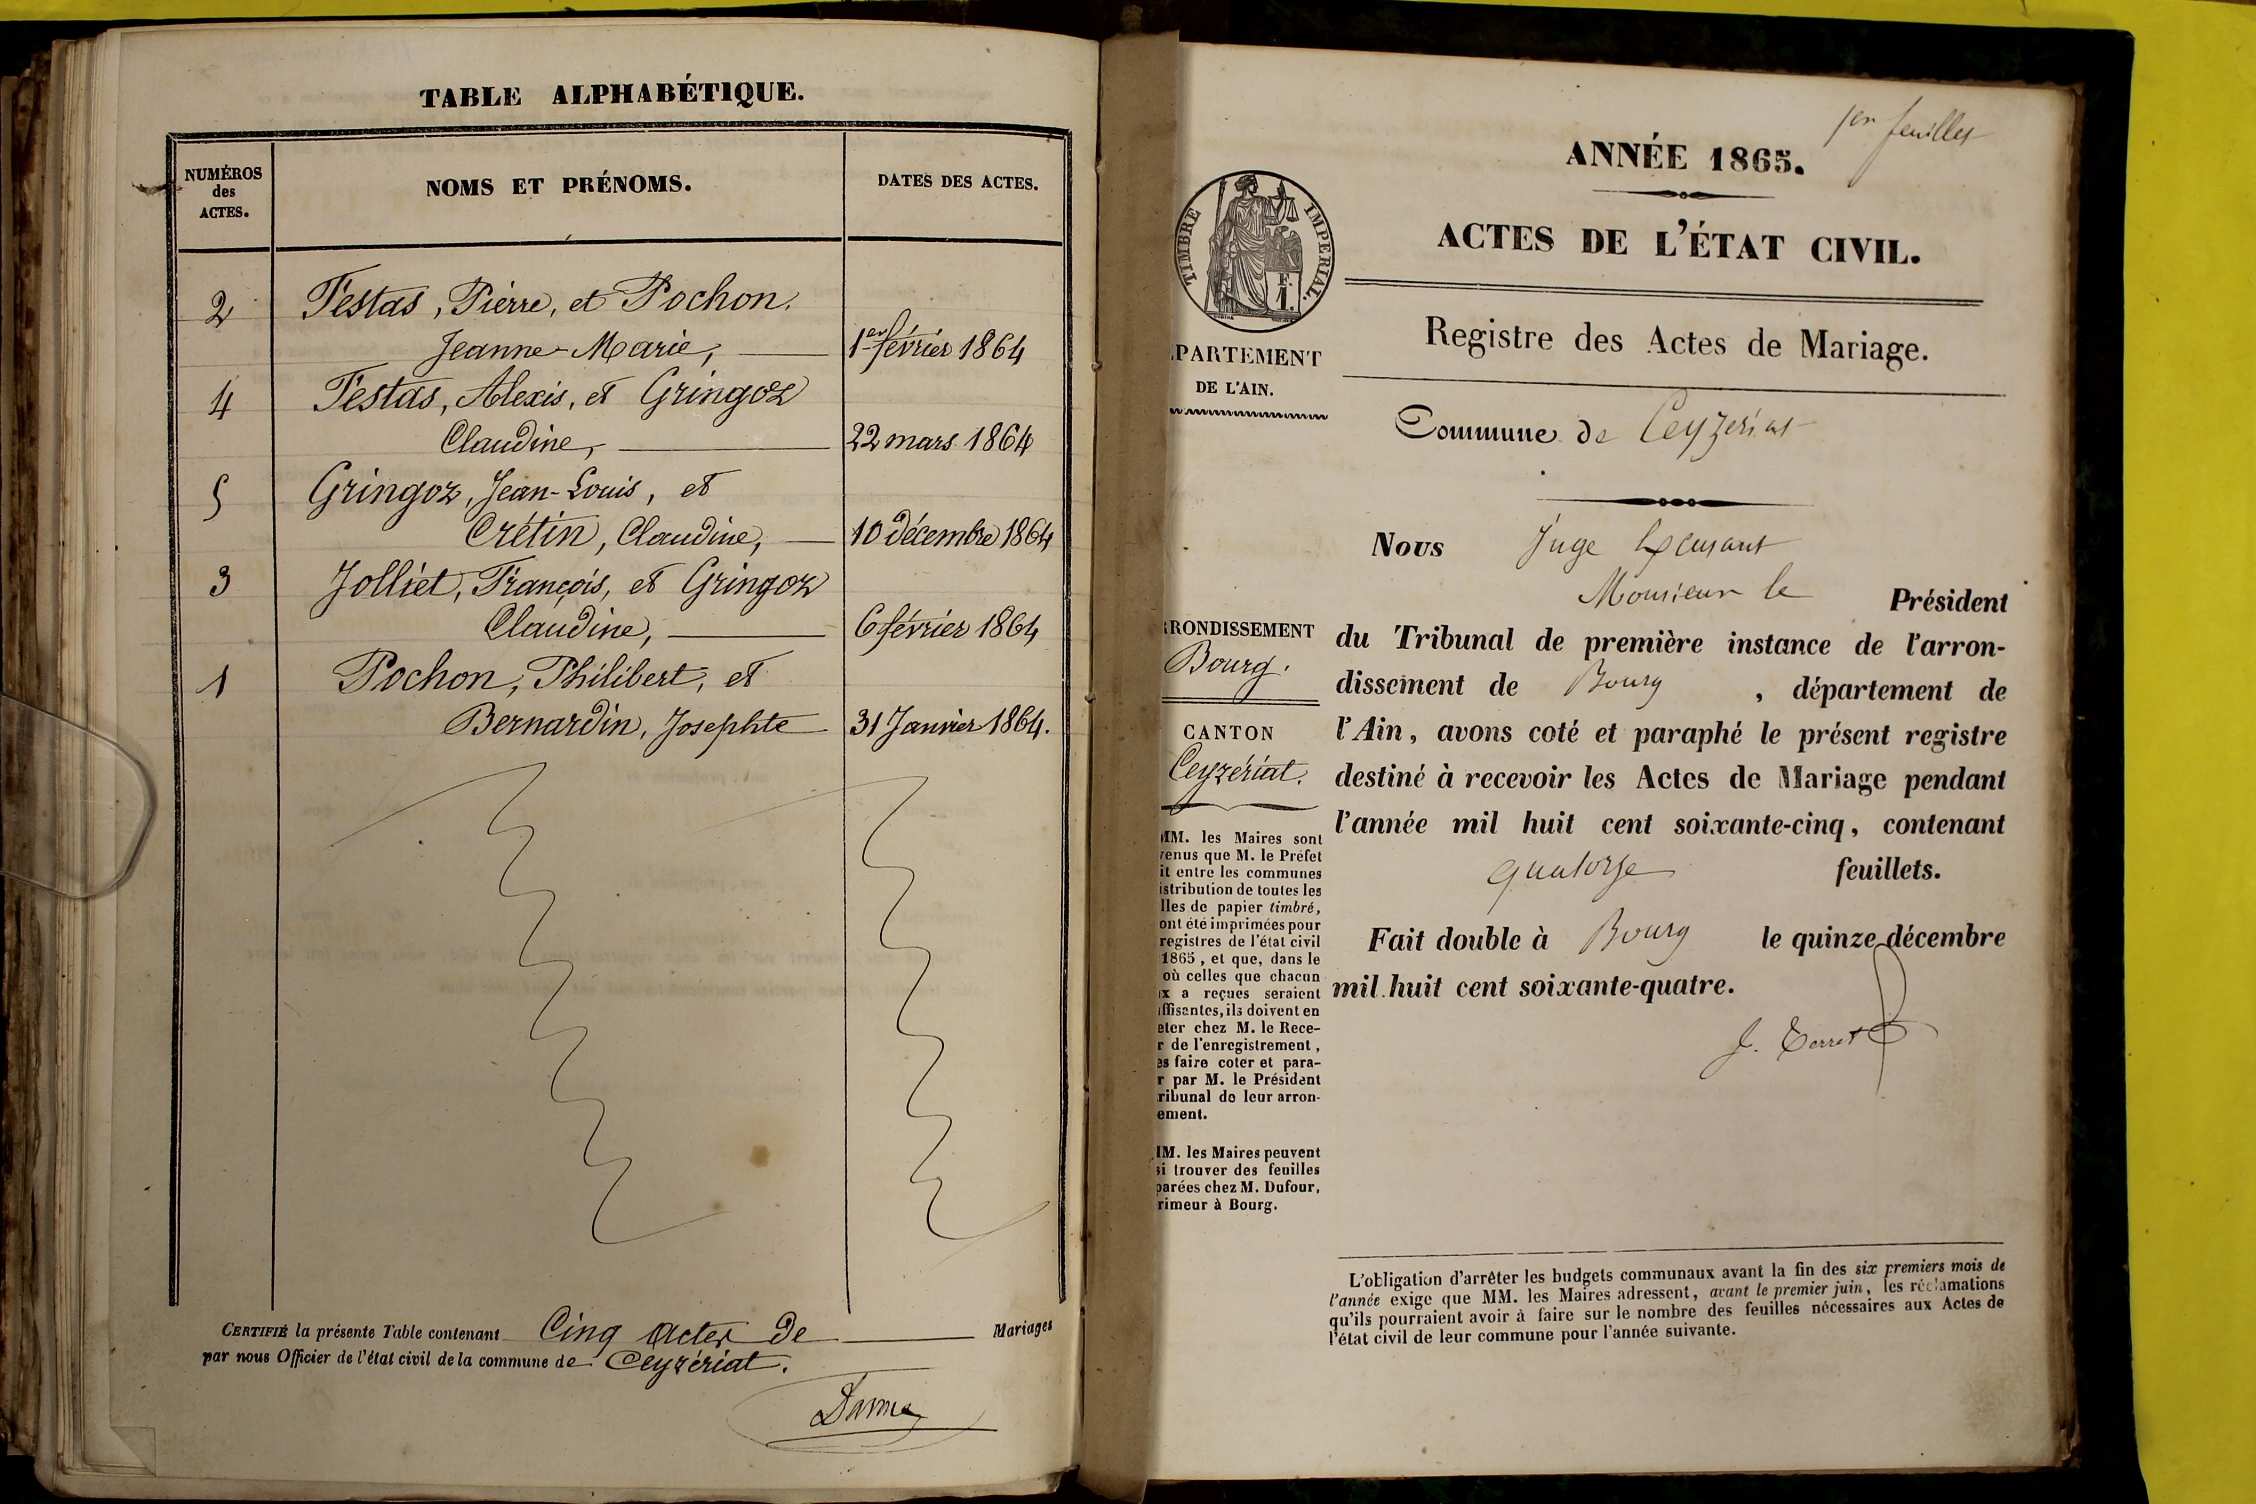 TABLE ALPHABÉTIQUE.
NUMÉROS
des
ACTES.
NOMS ET PRÉNOMS.
DATES DES ACTES.
2 Festas, Pierre, et Pochon.
Jeanne-Marie, 1er février 1864
4 Festas, Alexis, et Gringoz
Claudine, 22 mars 1864
5 Gringoz, Jean-Louis, et
Crétin, Claudine, 10 décembre 1864
3 Jolliet, François, et Gringoz
Claudine, 6 février 1864
1 Pochon, Philibert, et
Bernardin, Josephte 31 Janvier 1864.
CERTIFIÉ la présente Table contenant Cinq Actes de Mariages
par nous Officier de l'état civil de la commune de Ceyzériat.
1er feuillet
ANNÉE 1865.
ACTES DE L'ÉTAT CIVIL.
Registre des Actes de Mariage.
Commune de Ceyzeriat
Nous Juge
Monsieur le Président
du Tribunal de première instance de l'arron-
dissement de Bourg, département de
l'Ain, avons coté et paraphé le présent registre
destiné à recevoir les Actes de Mariage pendant
l'année mil huit cent soixante-cinq, contenant
quatorze feuillets.
Fait double à Bourg le quinze décembre
mil huit cent soixante-quatre.
TIMBRE IMPERIAL.
F.
1.
PARTEMENT
DE L'AIN.
RONDISSEMENT
Bourg.
CANTON
Ceyzériat.
MM. les Maires sont
venus que M. le Préfet
it entre les communes
istribution de toutes les
lles de papier timbré,
ont été imprimées pour
registres de l'état civil
1865, et que, dans le
où celles que chacun
x a reçues seraient
ffisantes, ils doivent en
eter chez M. le Rece-
r de l'enregistrement,
es faire coter et para-
r par M. le Président
ribunal de leur arron-
ement.
MM. les Maires peuvent
si trouver des feuilles
parées chez M. Dufour,
rimeur à Bourg.
L'obligation d'arrêter les budgets communaux avant la fin des six premiers mois de
l'année exige que MM. les Maires adressent, avant le premier juin, les réclamations
qu'ils pourraient avoir à faire sur le nombre des feuilles nécessaires aux Actes de
l'état civil de leur commune pour l'année suivante.